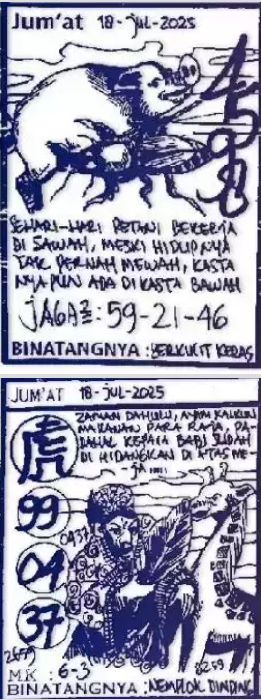 Jum'at 18-Jul-2025
4598
SEHARI-HARI PETANI BEKERJA
DI SAWAH, MESKI HIDUPNYA
TAK PERNAH MEWAH, KASTA
NYA PUN ADA DI KASTA BAWAH
JAGA2: 59-21-46
BINATANGNYA: BERKULIT KERAS
JUM'AT 18-JUL-2025
ZAMAN DAHULU, AYAM KALKUN
MAKANAN PARA RAJA, PA-
DAHAL KEPALA BABI SUDAH
DI HIDANGKAN DI ATAS ME-
-JA.....
虎
99
0437
04
37
2659
8259
MK : 6-3
BINATANGNYA: NEMPLOK DINDING